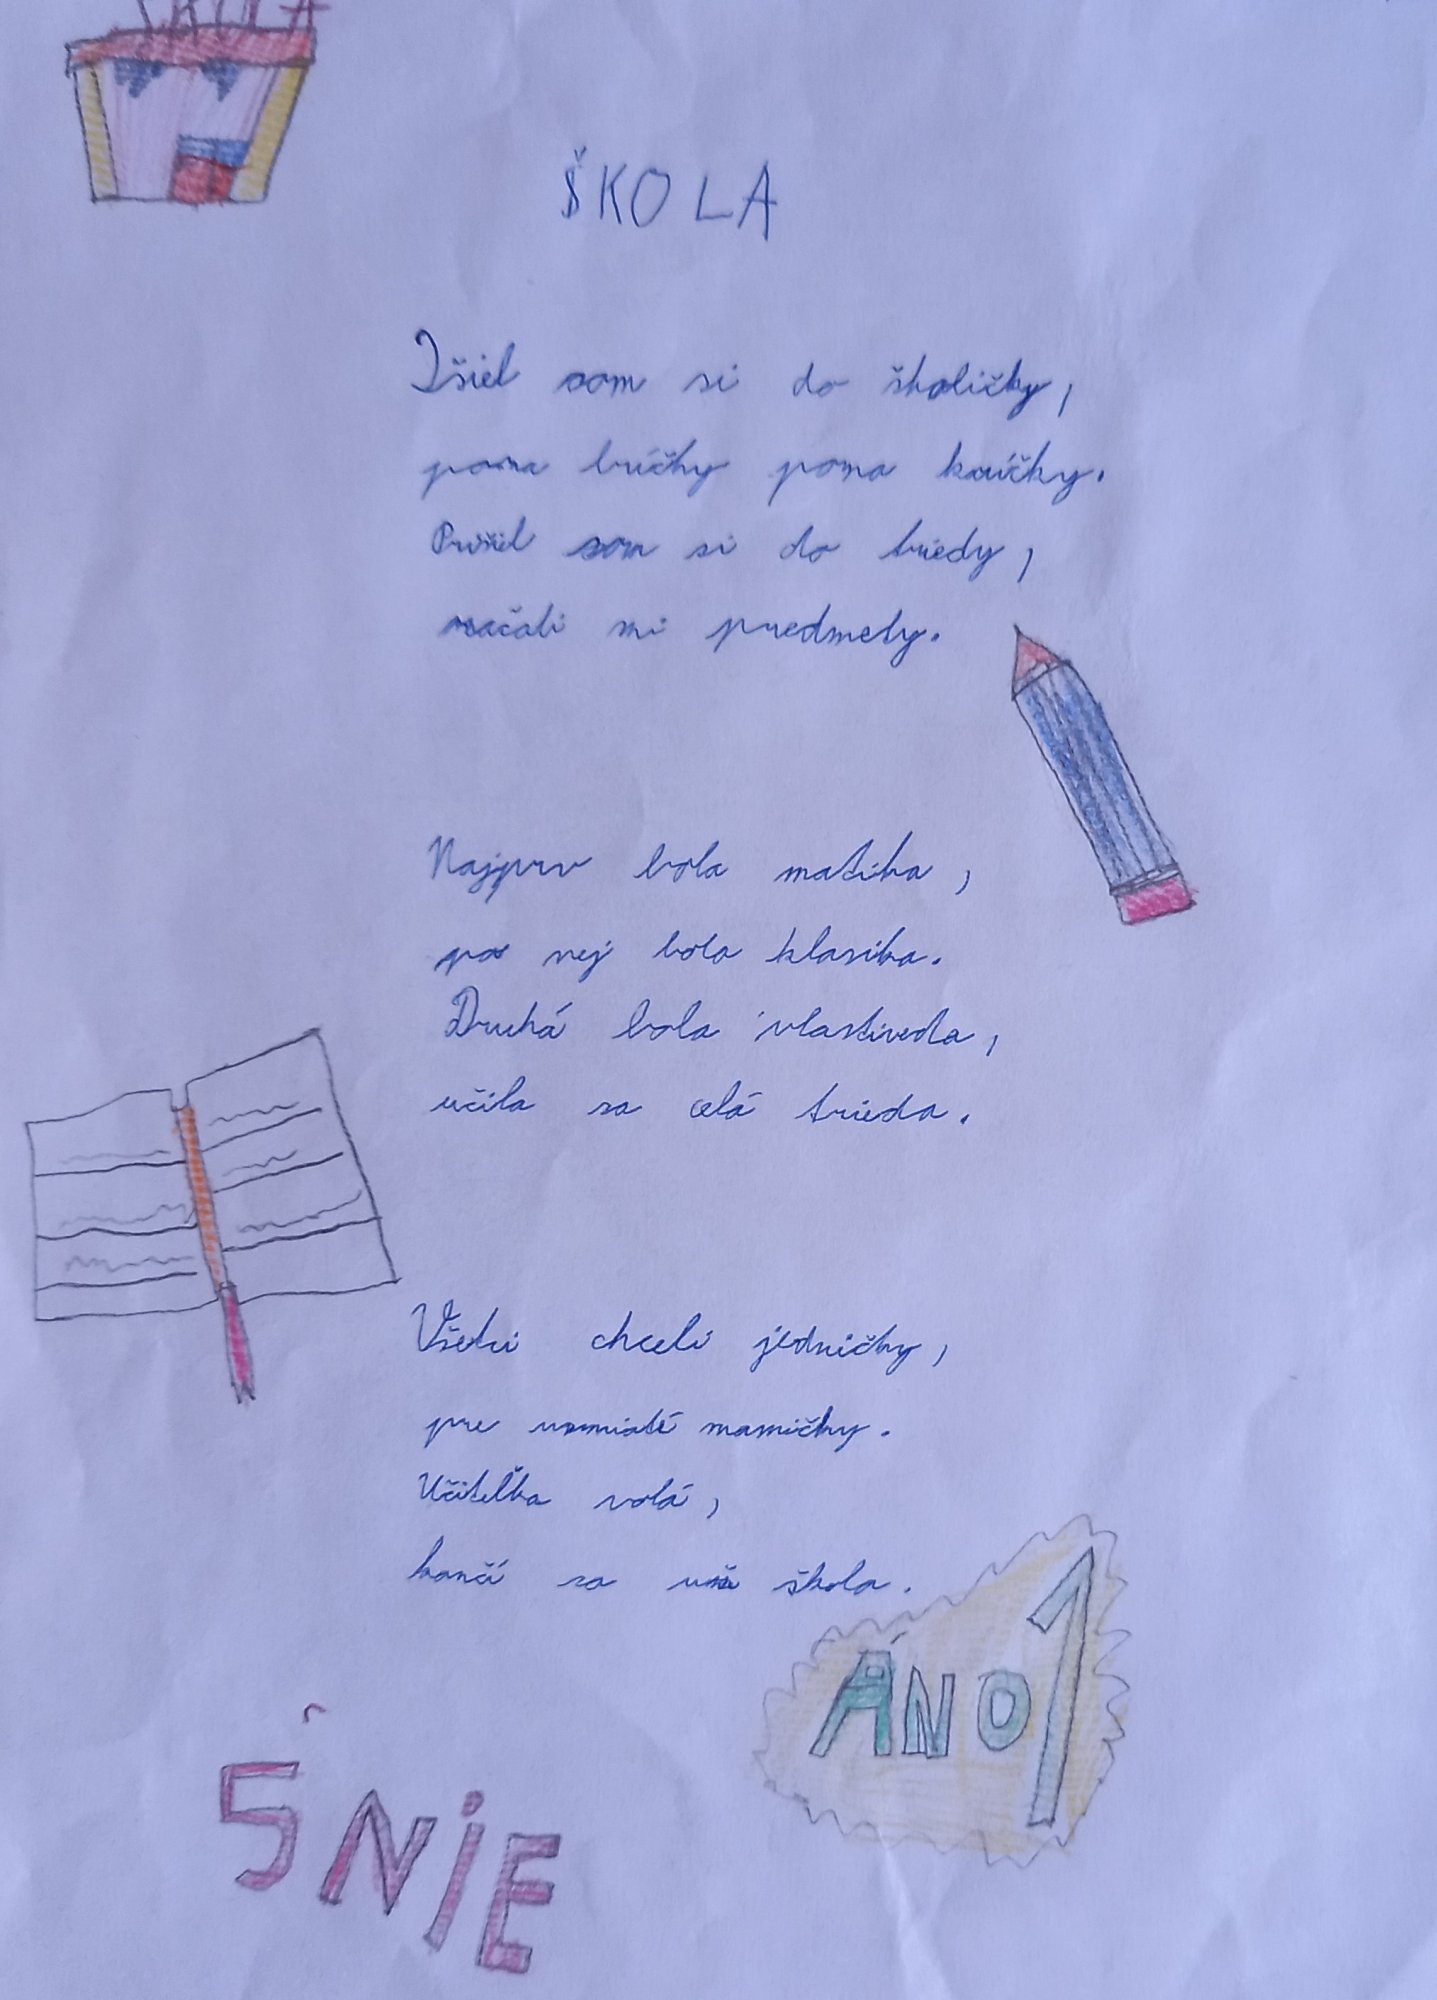 ŠKOLA
ŠKOLA
Išiel som si do školičky,
poma kríčky poma kvíčky.
Prišiel som si do triedy,
začali mi predmety.
Najprv bola matika,
po nej bola klasika.
Druhá bola vlastiveda,
učila sa celá trieda.
Všetci chceli jedničky,
pre usmiaté mamičky.
Učiteľka volá,
končí sa už škola.
ÁNO 1
5 NIE